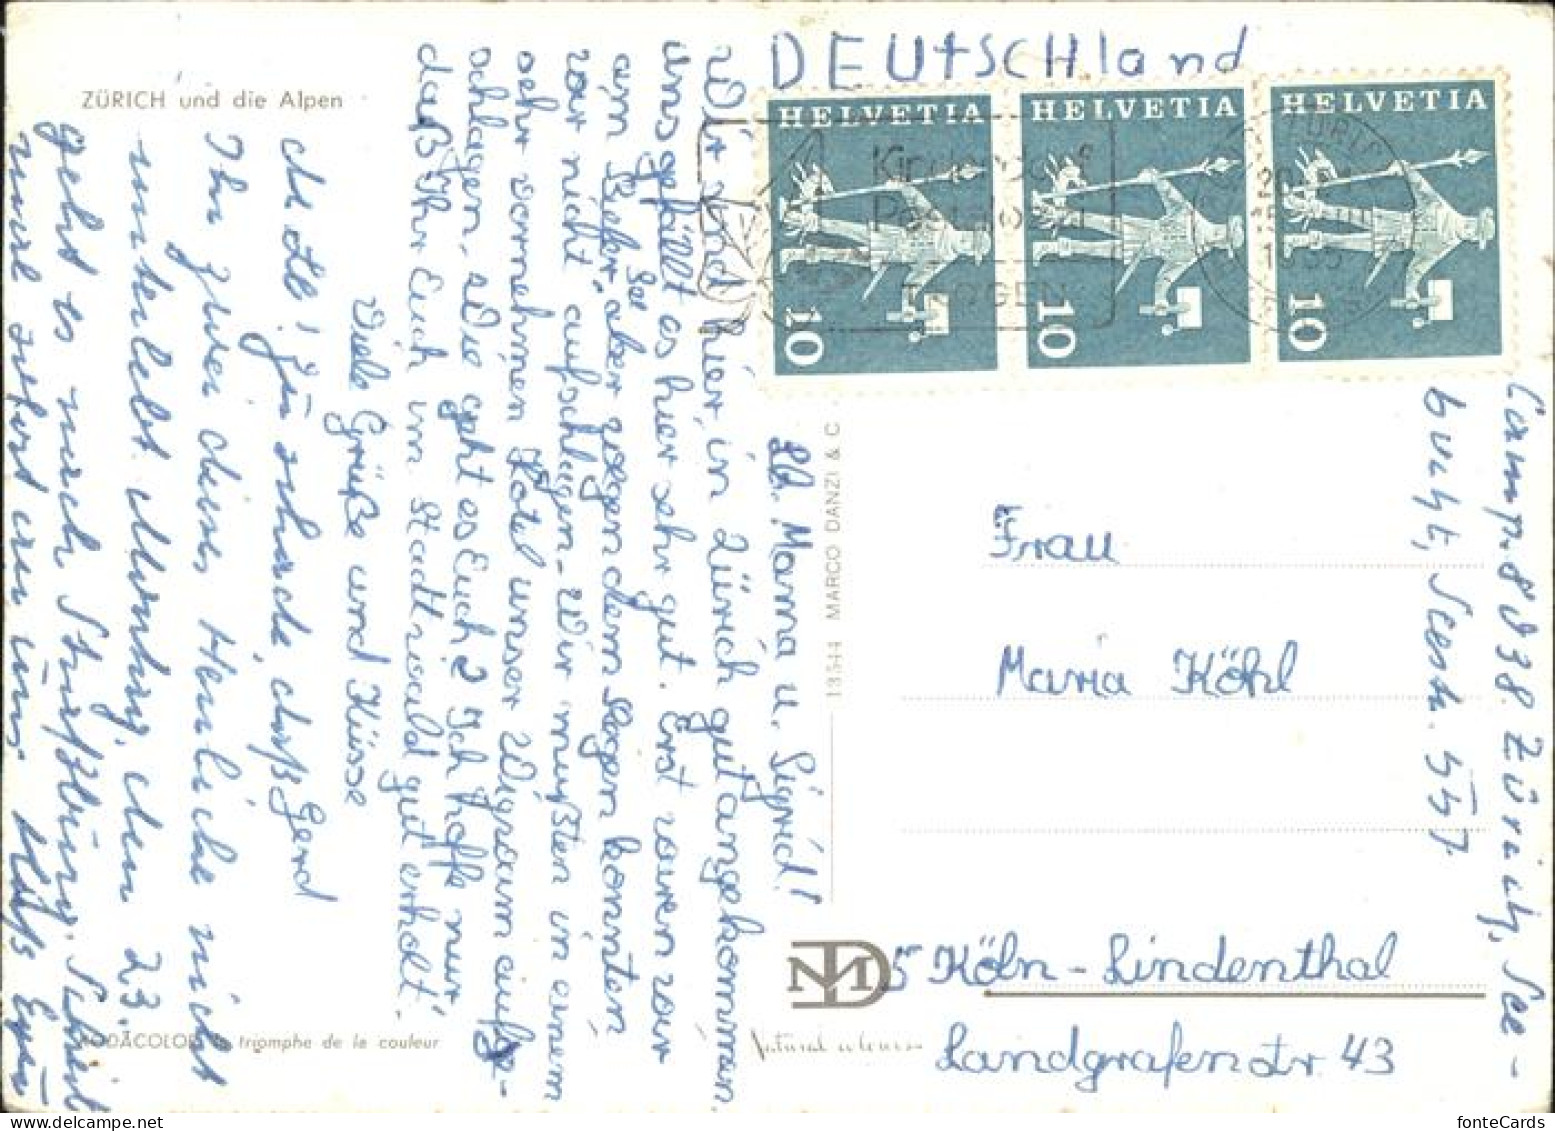 ZÜRICH und die Alpen
DEUtSCHland
HELVETIA
10
HELVETIA
10
HELVETIA
10
Kinderdorf
Pestalozzi
TROGEN
Lb. Mama u. Sigrid!
Wir sind hier, in Zürich gut angekommen.
Uns gefällt es hier sehr gut. Erst waren wir
am
aber wegen dem Regen konnten
wir nicht aufschlagen. Wir mußten in einem
sehr vornehmen Hotel unser Wigwam aufge-
schlagen. Wie geht es Euch? Ich hoffe nur,
daß Ihr Euch im Stadtwald gut erholt.
Viele Grüße und Küsse
Gerd
zu schade, daß
Ihr zwei dieses Herrliche nicht
miterlebt. Montag, den 23.
geht es nach Straßburg. Schreibt
Camp. 8038 Zürich, See-
bucht, Seestr. 557
Frau
Maria Köhl
5 Köln-Lindenthal
Landgrafenstr 43
13544 MARCO DANZI & C.
MD
KODACOLOR le triomphe de la couleur
Natural colours
fonteCards